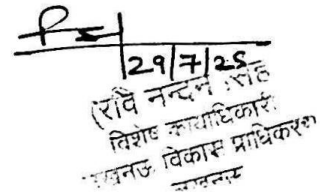 29/7/25
(रवि नन्दन सिंह
विशेष कार्याधिकारी
लखनऊ विकास प्राधिकरण
लखनऊ